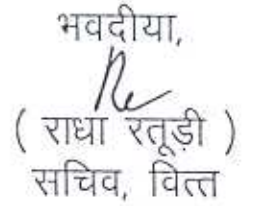 भवदीया,
( राधा रतूड़ी )
सचिव, वित्त